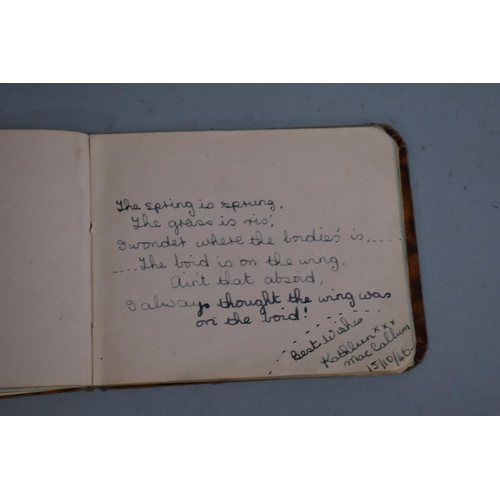 The spring is sprung,
The grass is ris',
I wonder where the boidies' is, .....
.... The boid is on the wing,
Ain't that absoid,
I always thought the wing was
on the boid!
Best Wishes
Kathleen xxx
MacCallum
15/10/46